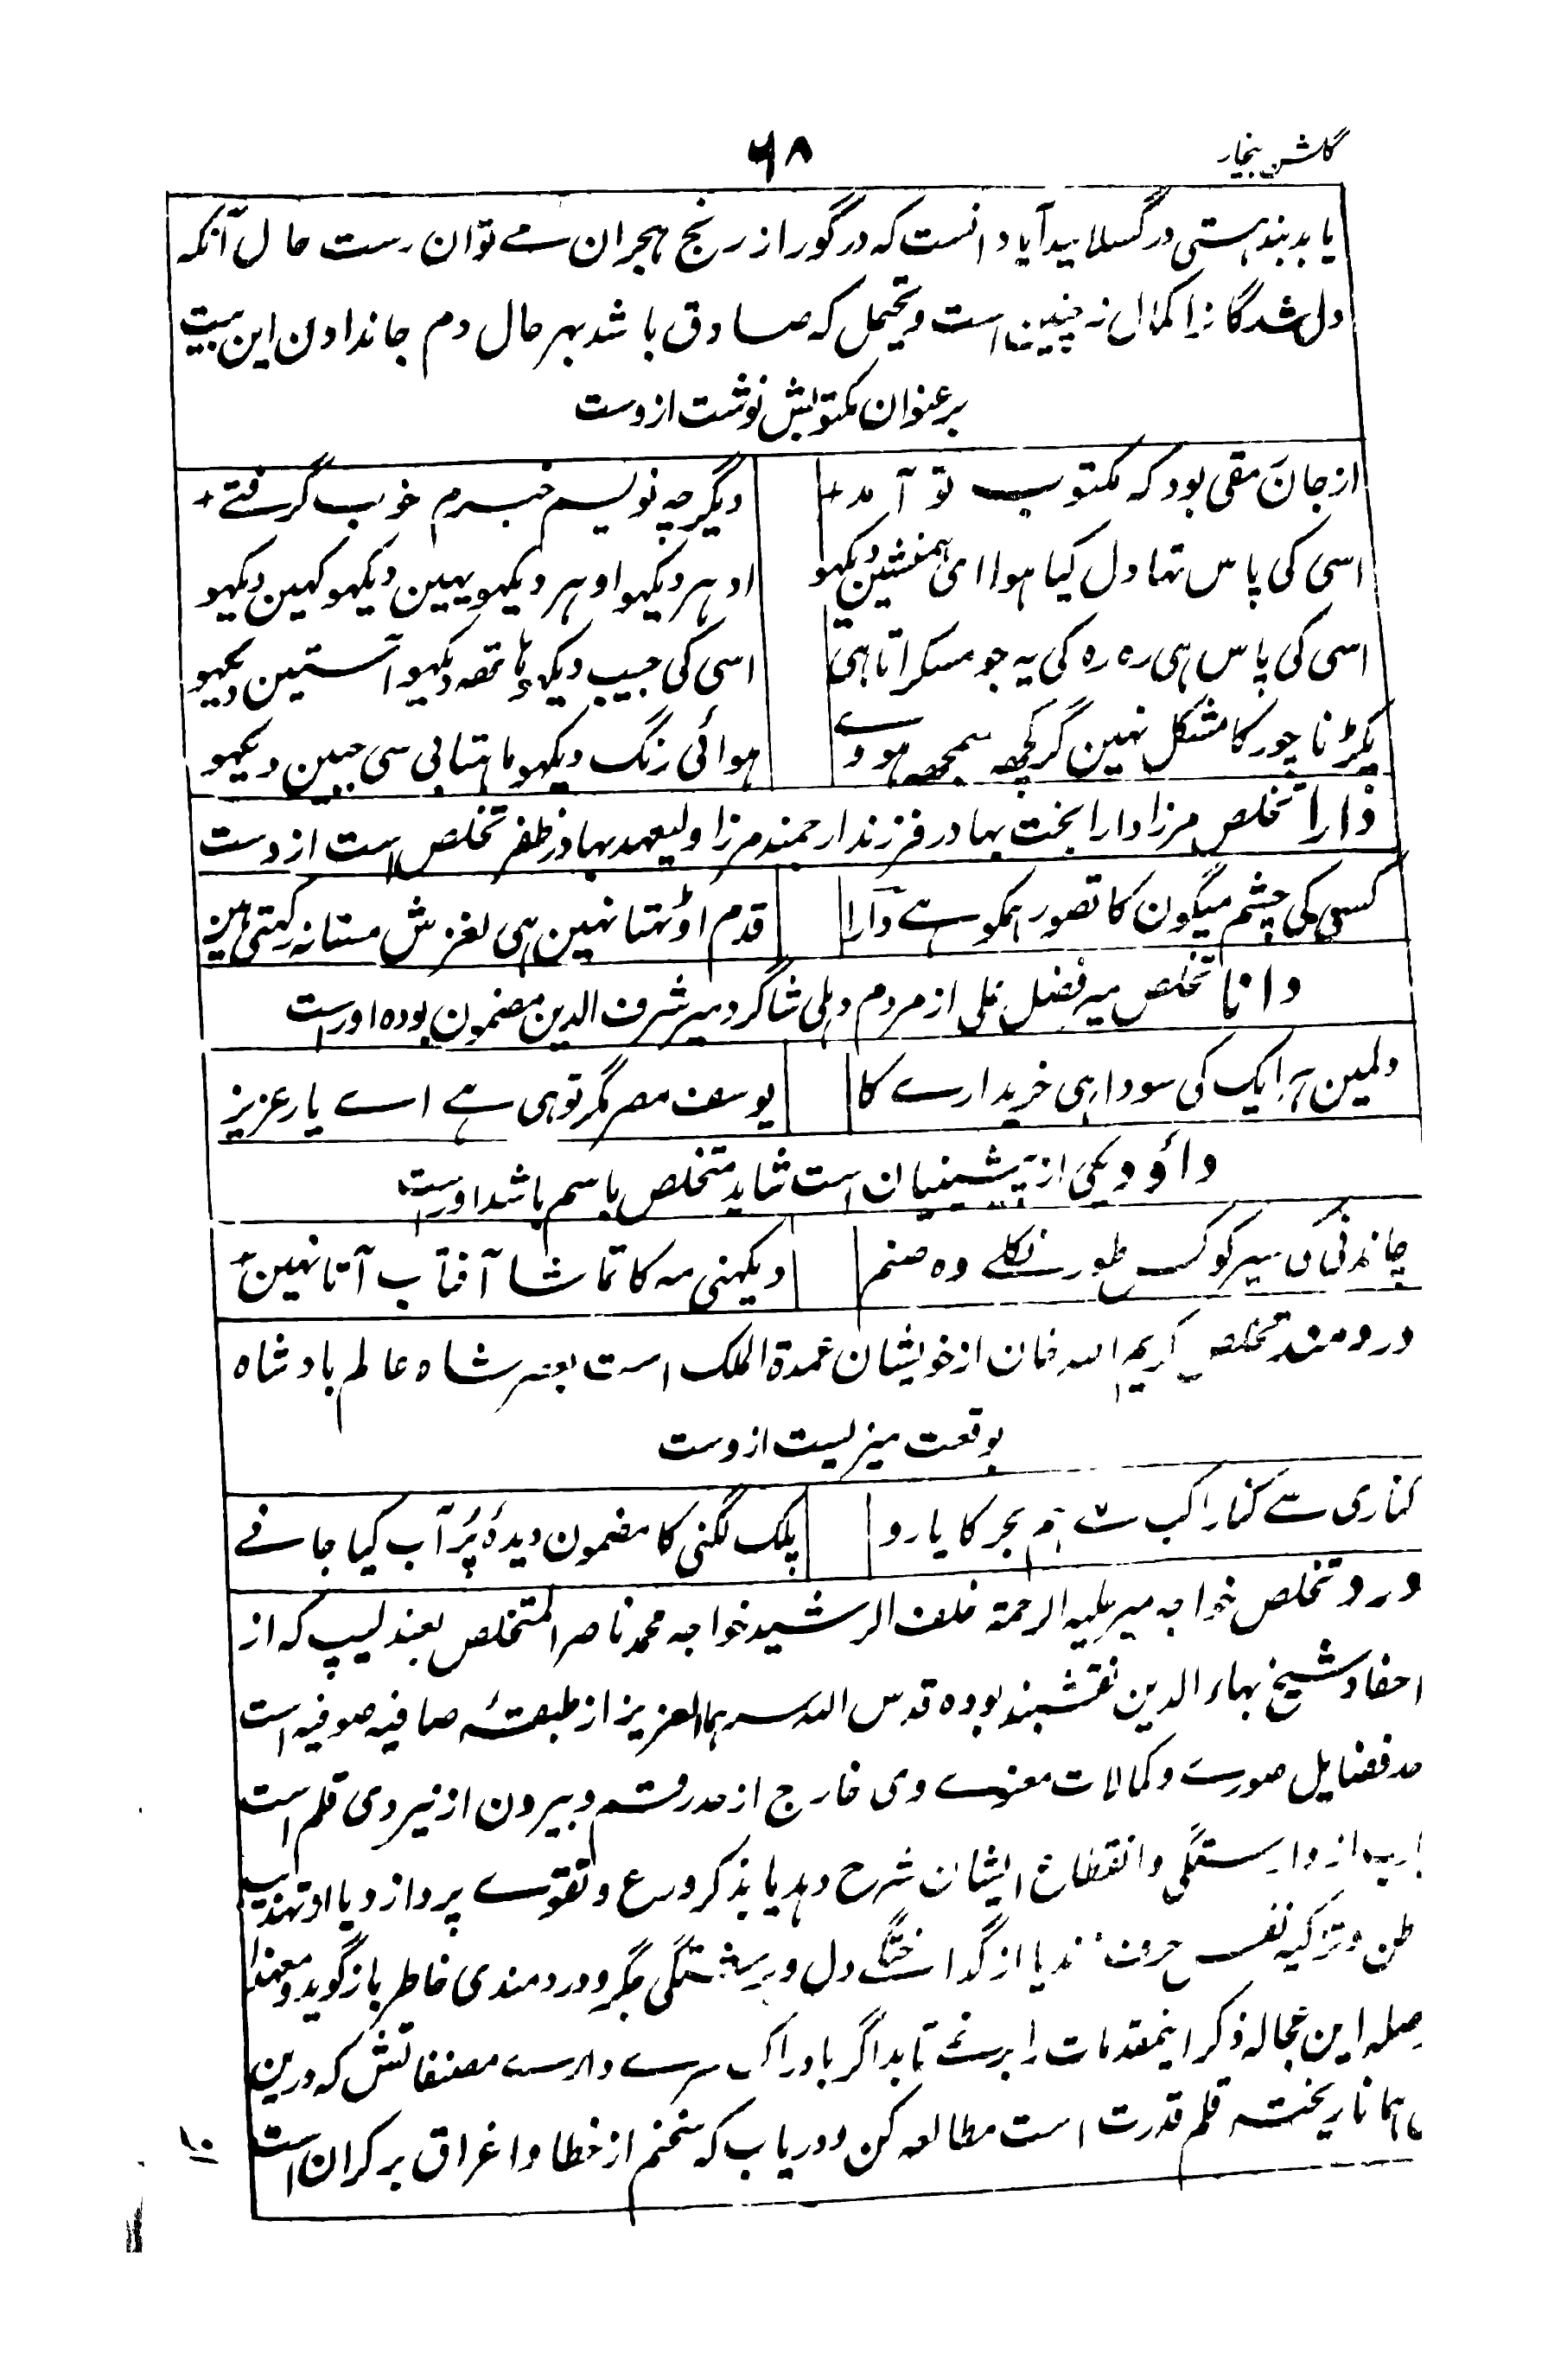 گلشن بیخار
۶۸
یا بد بند ہستی در گسلا بید آیا دانست کہ در گور از رنج ہجران مے توان رست حال آنکہ
دل شدگا نرا کمال نہ چنین است و محتمل کہ صادق باشد بہر حال دم جاندادن این بیت
بر عنوان مکتوبش نوشت از وست
از جان رمقی بود کہ مکتوب تو آمد + دیگر چہ نویسم خبرم خوب گرفتے +
اسی کی پاس تہا دل کیا ہوا ای ہمنشین دیکہو ادہر دیکہو اودہر دیکہو یہین دیکہو کہین دیکہو
اسی کی پاس ہی رہ رہ کی یہ جو مسکراتا ہی اسی کی جیب دیکہو ہاتھہ دیکہو آستین دیکہو
پکڑنا چور کا مشکل نہین گر کچھہ سمجھہ ہووے ہوائی رنگ دیکہو ماہتابی سی جبین دیکہو
دارا تخلص مرزا دارا بخت بہادر فرزند ارجمند مرزا ولیعہد بہادر ظفر تخلص است از وست
کسی کی چشم میگون کا تصور ہمکو ہے دارا قدم اوٹہتا نہین ہی لغزش مستانہ رکہتی ہین
دانا تخلص میر فضل علی از مردم دہلی شاگرد میر شرف الدین مضمون بودہ اوراست
دلمین ہر ایک کی سودا ہی خریدارے کا یوسف مصر مگر توہی ہے اے یار عزیز
داؤد یکی از پیشینیان است شاید متخلص باسم باشد اوراست
چاندنی کی سیر کو کس طور نکلے وہ صنم دیکہنی مہ کا تماشا آفتاب آتا نہین
دردمند تخلص کریم اللہ خان از خویشان عمدۃ الملک است بعصر شاہ عالم بادشاہ
بوقعت میزیست از وست
کناری سے کنارا کب ہم بحر کا یارو پلک لگنی کا مضمون دیدۂ پُر آب کیا جانے
درد تخلص خواجہ میر علیہ الرحمۃ خلف الرشید خواجہ محمد ناصر المتخلص بعندلیب کہ از
احفاد شیخ بہاء الدین نقشبند بودہ قدس اللہ سرہما العزیز از طبقۂ صافیہ صوفیہ است
فضایل صورے و کمالات معنوے وی خارج از حد رقم و بیرون از نیروی قلم است
از وارستگی و انقطاع ایشان شرح دہد یا بذکر ورع و تقوے پردازد یا از تہذیب
و تزکیہ نفس حرف یا از گداختگی دل و برشتگی جگر و دردمندی خاطر باز گوید و معہذا
این عجالہ ذکر اینمقدمات را برنتابد اگر بادراک سرے دارے مصنفاتش کہ درین
ہمانا ریختہ قلم قدرت است مطالعہ کن و دریاب کہ سخنم از خطا و اغراق برکران است